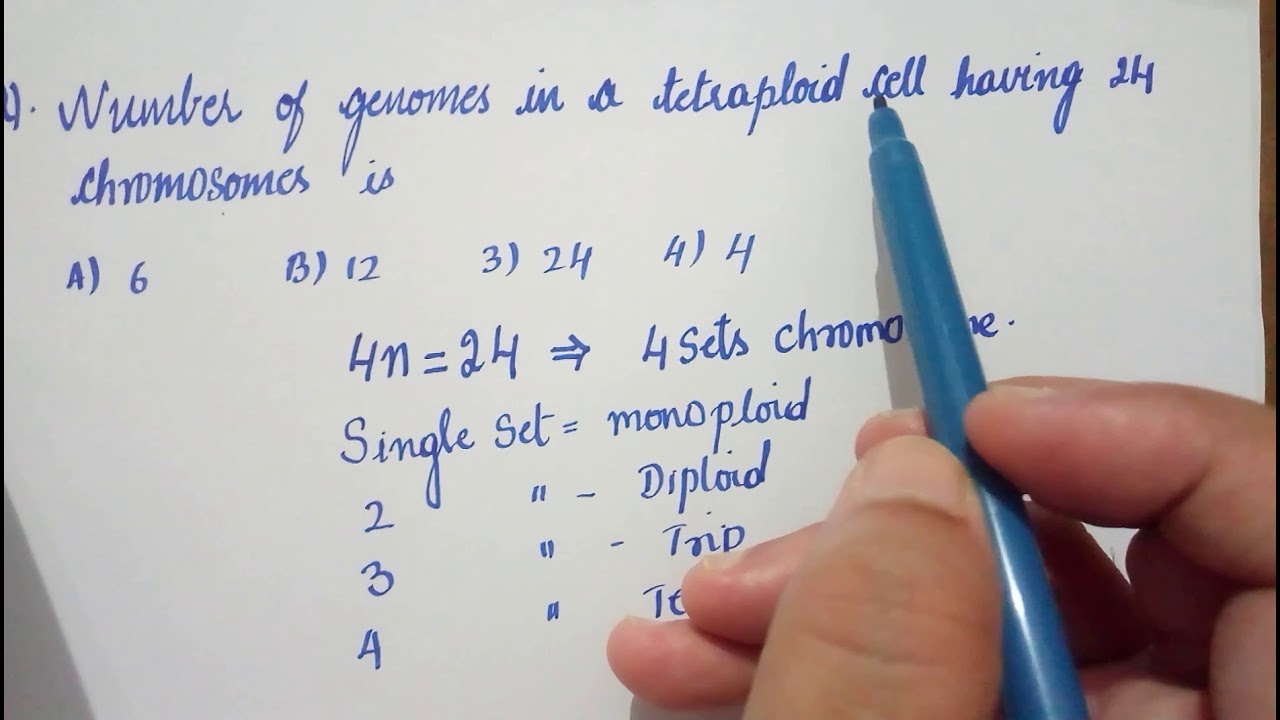 . Number of genomes in a tetraploid cell having 24
chromosomes is
A) 6 B) 12 3) 24 4) 4
4n = 24 ⇒ 4 Sets
Single Set = monoploid
2 " - Diploid
3 " - Trip
4 "